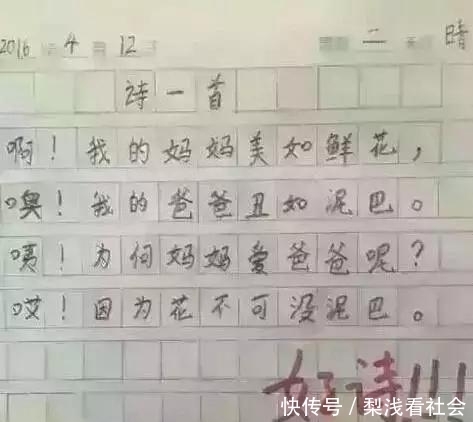 2016 4 12 二 晴
诗一首
啊！我的妈妈美如鲜花，
噢！我的爸爸丑如泥巴。
咦！为何妈妈爱爸爸呢？
哎！因为花不可没泥巴。
好诗!!!
快传号 / 梨浅看社会